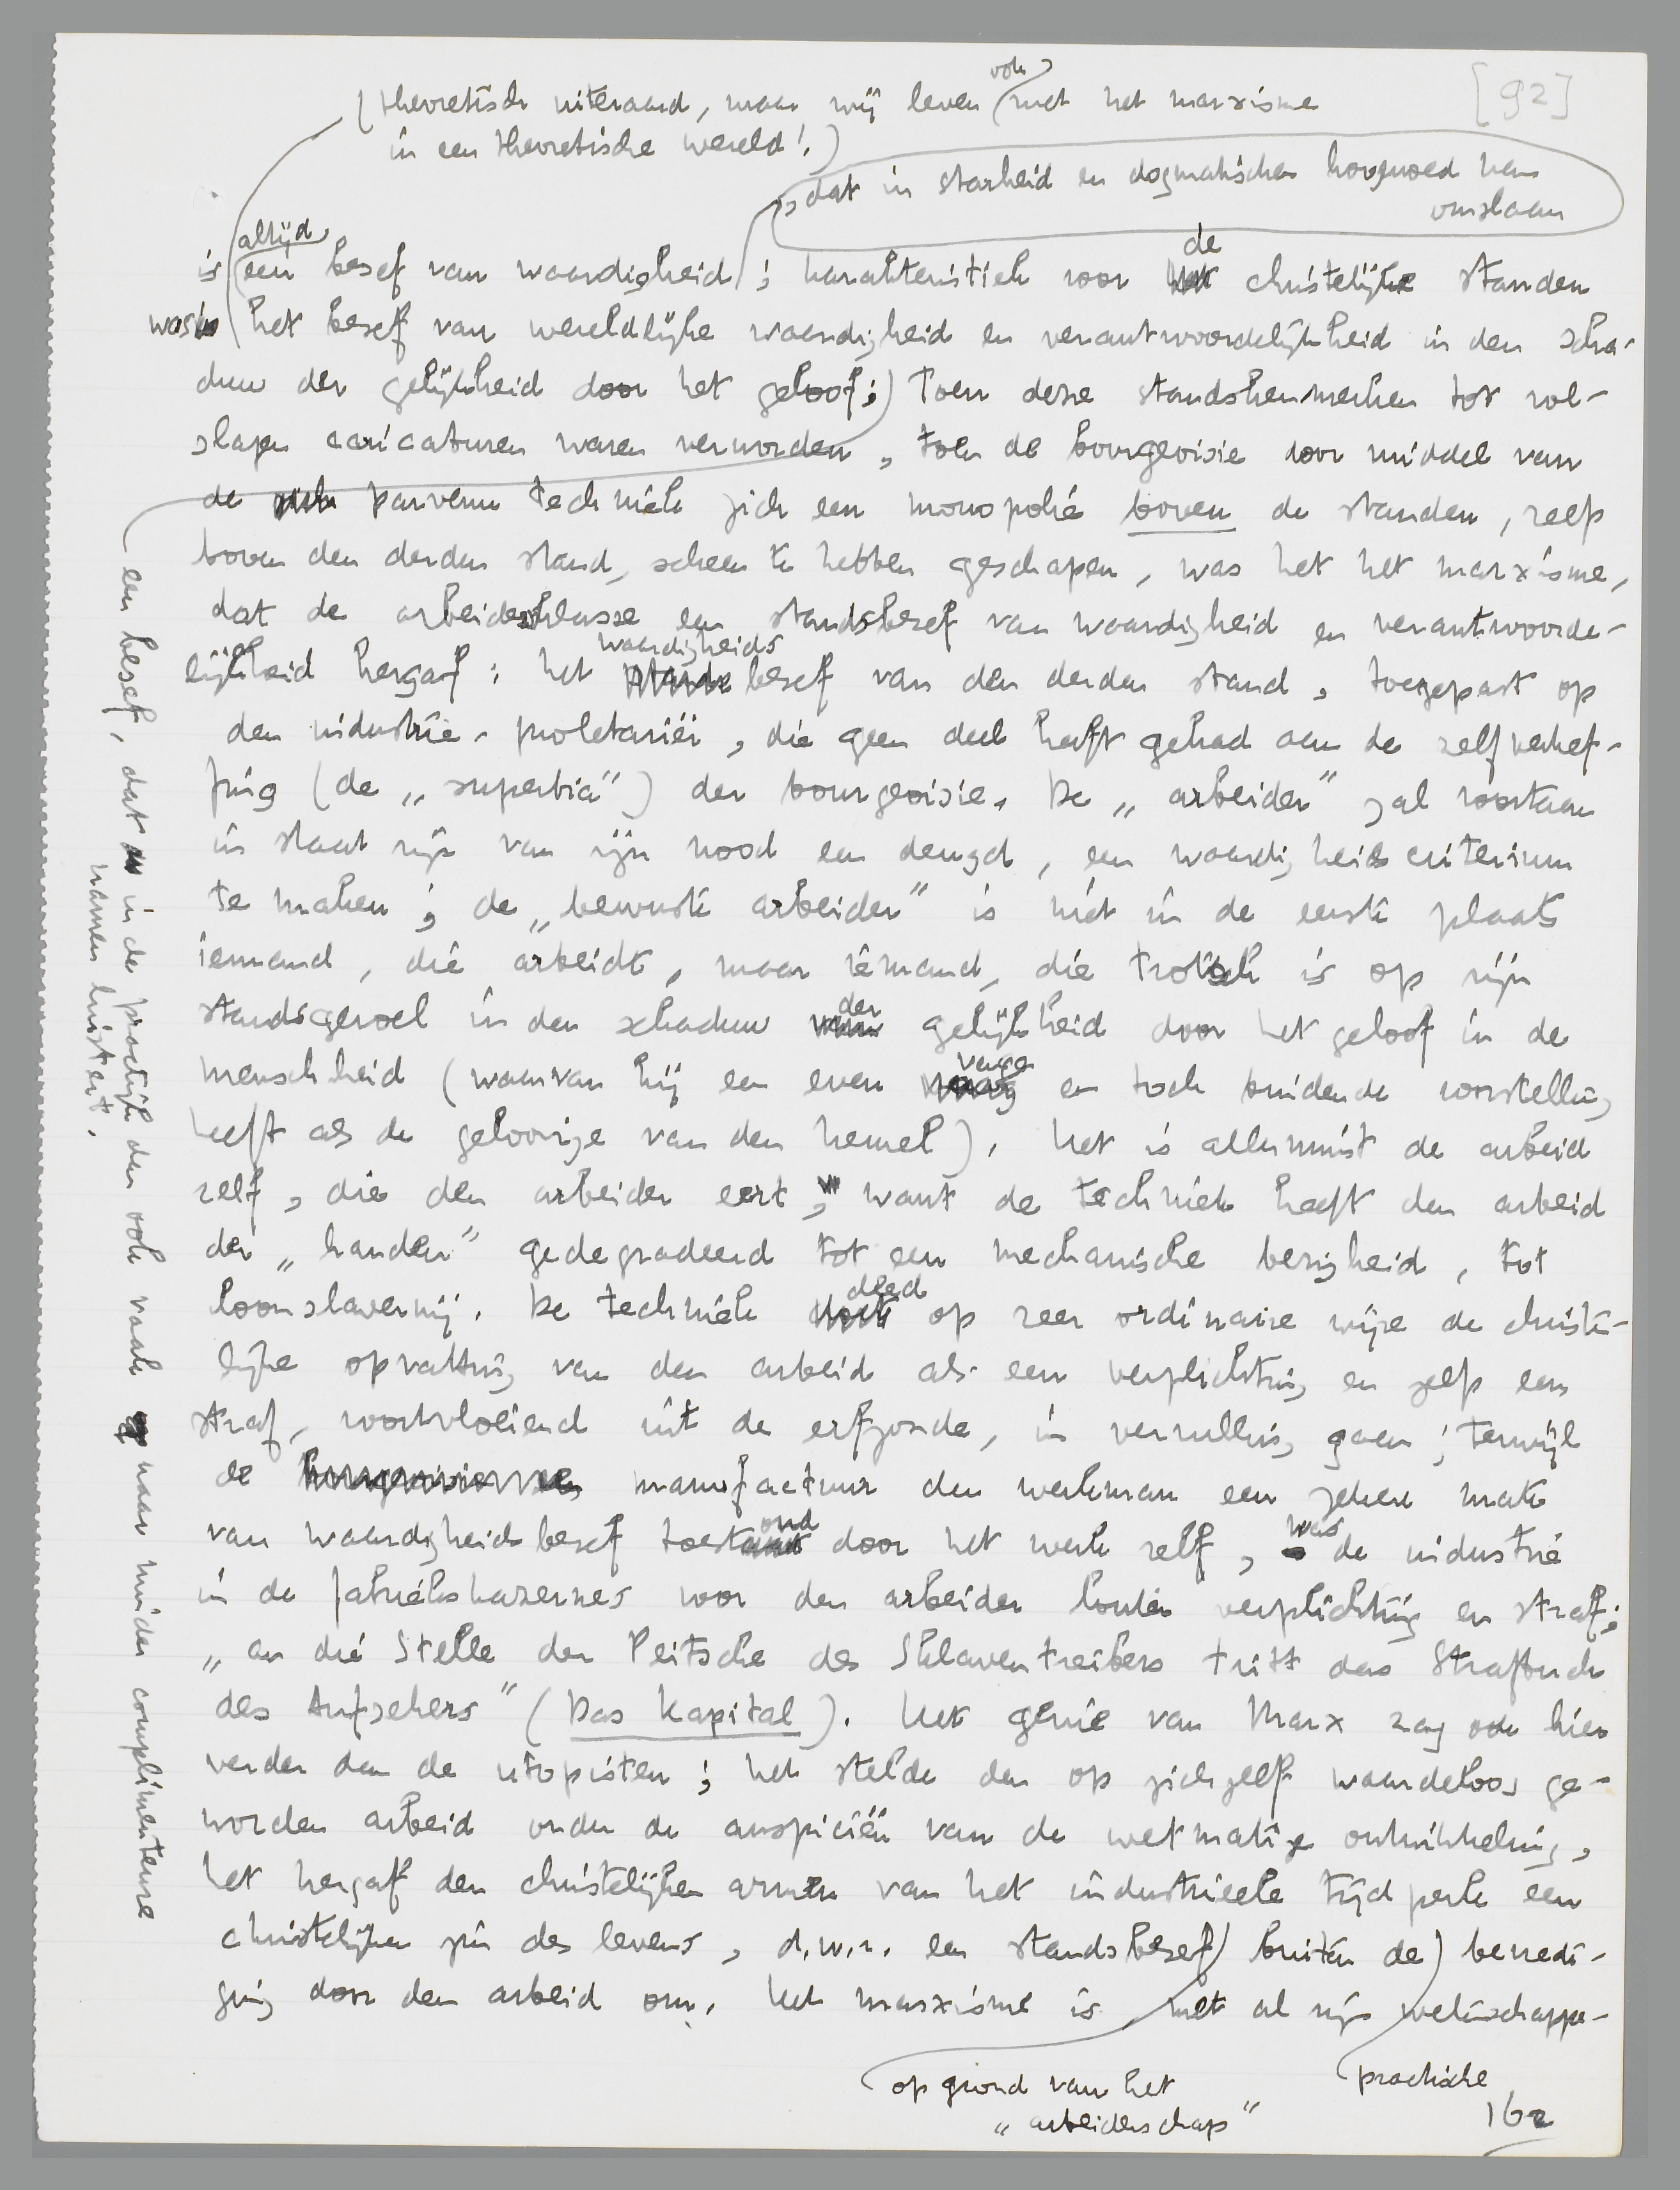 [92]
(theoretisch uiteraard, maar wij leven ook met het marxisme
in een theoretische wereld!)
, dat in starheid en dogmatischen hoogmoed kan
omslaan
altijd
is een besef van waardigheid; karakteristiek voor de christelijke standen
was het besef van wereldlijke waardigheid en verantwoordelijkheid in den scha-
duw der gelijkheid door het geloof;) Toen deze standskenmerken tot vol-
slagen caricaturen waren verworden, toen de bourgeoisie door middel van
de parvenu techniek zich een monopolie boven de standen, zelfs
boven den derden stand, scheen te hebben geschapen, was het het marxisme,
dat de arbeidersklasse een standsbesef van waardigheid en verantwoorde-
lijkheid hergaf: het waardigheids besef van den derden stand, toegepast op
den industrie-proletariër, die geen deel heeft gehad aan de zelfverhef-
fing (de „superbia") der bourgeoisie. De „arbeider" zal voortaan
in staat zijn van zijn nood een deugd, een waardigheidscriterium
te maken; de „bewuste arbeider" is niet in de eerste plaats
iemand, die arbeidt, maar iemand, die trotsch is op zijn
standsgevoel in den schaduw der gelijkheid door het geloof in de
menschheid (waarvan hij een even vage en toch bindende voorstelling
heeft als de geloovige van den hemel). Het is allerminst de arbeid
zelf, die den arbeider eert, want de techniek heeft den arbeid
der „handen" gedegradeerd tot een mechanische bezigheid, tot
loonslavernij. De techniek deed op zeer ordinaire wijze de christe-
lijke opvatting van den arbeid als een verplichting en zelfs een
straf, voortvloeiend uit de erfzonde, in vervulling gaan; terwijl
de manufactuur den werkman een zekere mate
van waardigheidsbesef toestond door het werk zelf, was de industrie
in de fabriekskazernes voor den arbeider louter verplichting en straf;
„an die Stelle der Peitsche des Sklaventreibers tritt das Strafbuch
des Aufsehers" (Das Kapital). Het genie van Marx zag ook hier
verder dan de utopisten; het stelde den op zichzelf waardeloos ge-
worden arbeid onder de auspiciën van de wetmatige ontwikkeling,
het hergaf den christelijken armen van het industrieele tijdperk een
christelijken zin des levens, d.w.z. een standsbesef buiten de bevredi-
ging door den arbeid om. Het marxisme is met al zijn wetenschappe-
op grond van het
„arbeiderschap"
practische
162
een besef, dat in de practijk dan ook vaak naar minder complimenteuse
namen luistert.